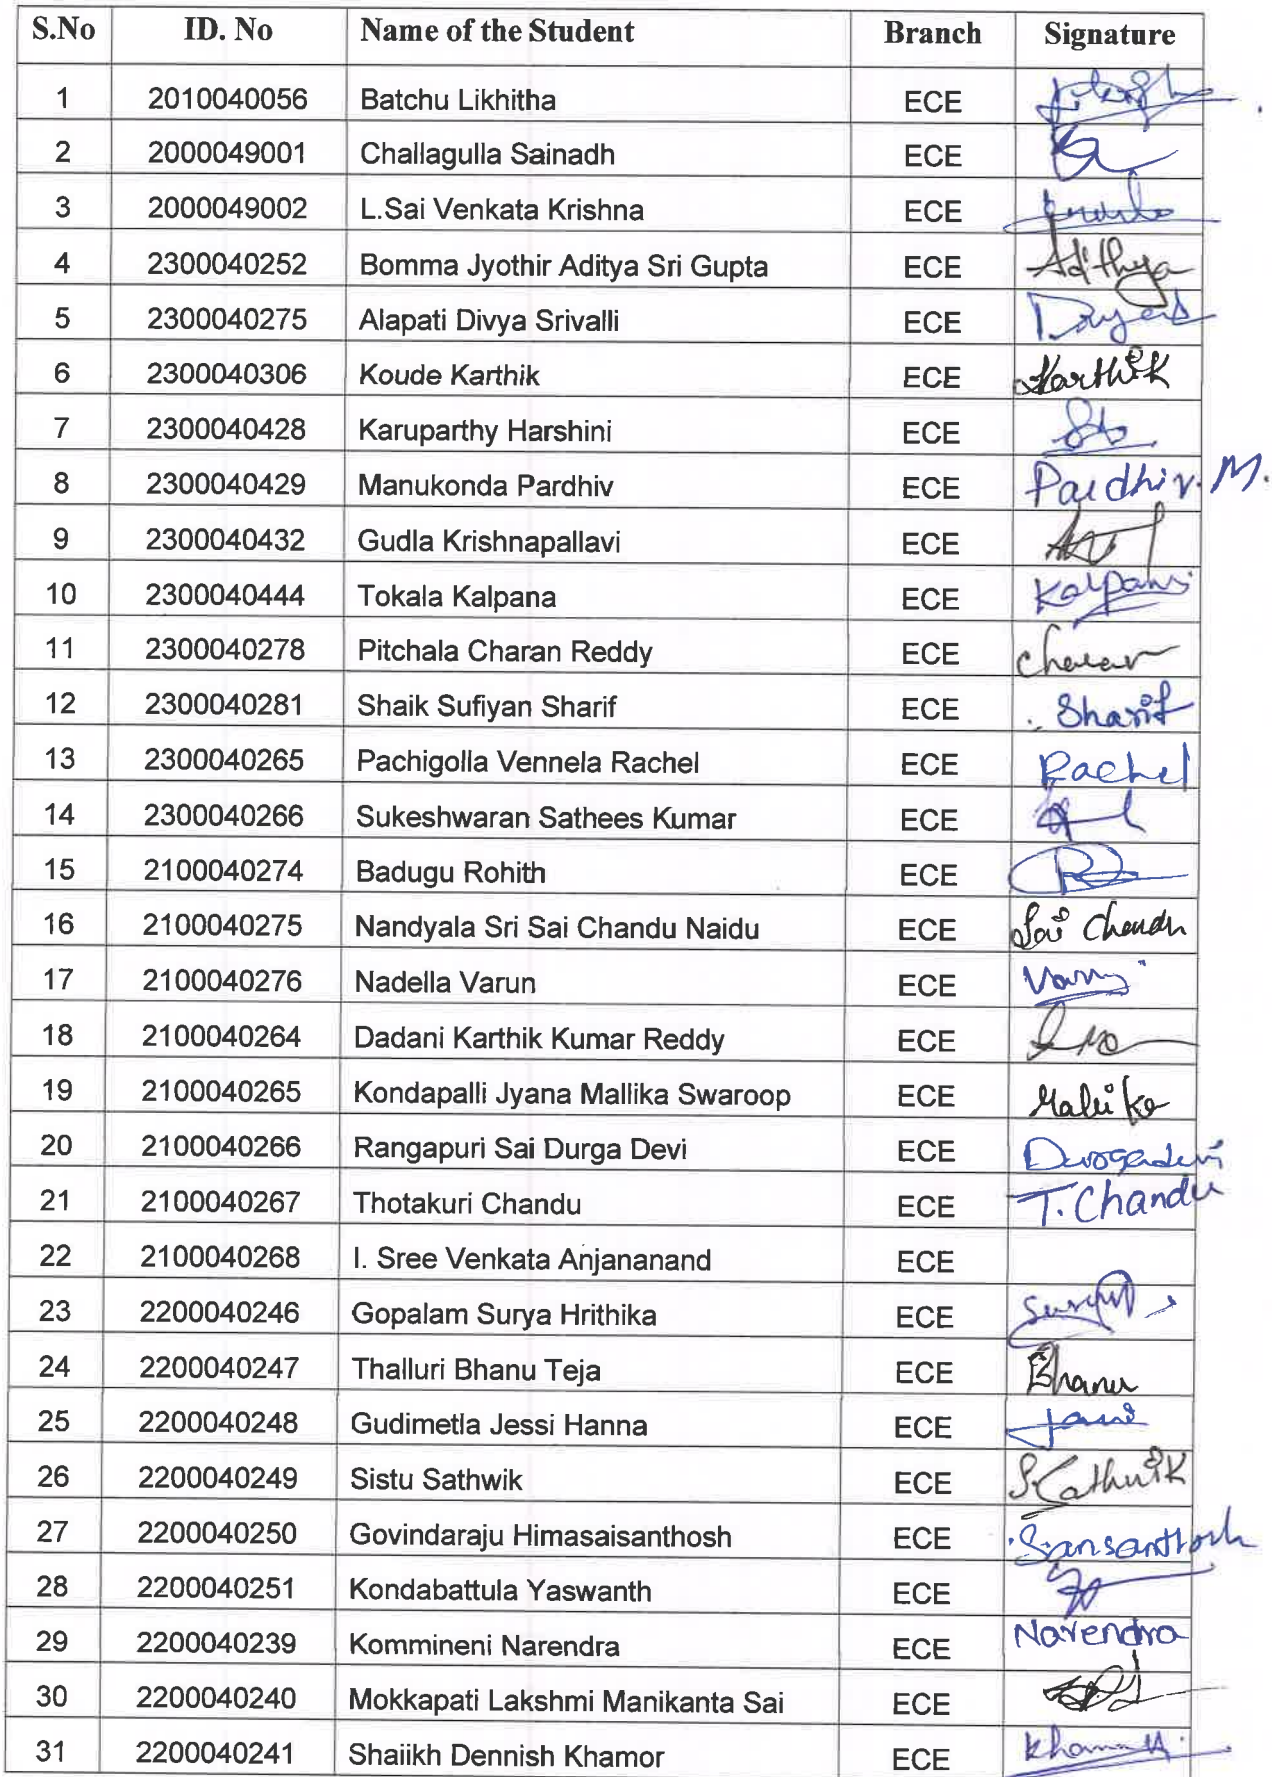 S.No ID. No Name of the Student Branch Signature
1 2010040056 Batchu Likhitha ECE
2 2000049001 Challagulla Sainadh ECE
3 2000049002 L.Sai Venkata Krishna ECE
4 2300040252 Bomma Jyothir Aditya Sri Gupta ECE Adithya
5 2300040275 Alapati Divya Srivalli ECE
6 2300040306 Koude Karthik ECE Karthik
7 2300040428 Karuparthy Harshini ECE
8 2300040429 Manukonda Pardhiv ECE Pardhiv. M.
9 2300040432 Gudla Krishnapallavi ECE
10 2300040444 Tokala Kalpana ECE
11 2300040278 Pitchala Charan Reddy ECE Charan
12 2300040281 Shaik Sufiyan Sharif ECE Sharif
13 2300040265 Pachigolla Vennela Rachel ECE Rachel
14 2300040266 Sukeshwaran Sathees Kumar ECE
15 2100040274 Badugu Rohith ECE
16 2100040275 Nandyala Sri Sai Chandu Naidu ECE Sai Chandu
17 2100040276 Nadella Varun ECE
18 2100040264 Dadani Karthik Kumar Reddy ECE
19 2100040265 Kondapalli Jyana Mallika Swaroop ECE
20 2100040266 Rangapuri Sai Durga Devi ECE Durgadevi
21 2100040267 Thotakuri Chandu ECE T. Chandu
22 2100040268 I. Sree Venkata Anjananand ECE
23 2200040246 Gopalam Surya Hrithika ECE
24 2200040247 Thalluri Bhanu Teja ECE Bhanu
25 2200040248 Gudimetla Jessi Hanna ECE
26 2200040249 Sistu Sathwik ECE S. Sathwik
27 2200040250 Govindaraju Himasaisanthosh ECE
28 2200040251 Kondabattula Yaswanth ECE
29 2200040239 Kommineni Narendra ECE Narendra
30 2200040240 Mokkapati Lakshmi Manikanta Sai ECE
31 2200040241 Shaiikh Dennish Khamor ECE